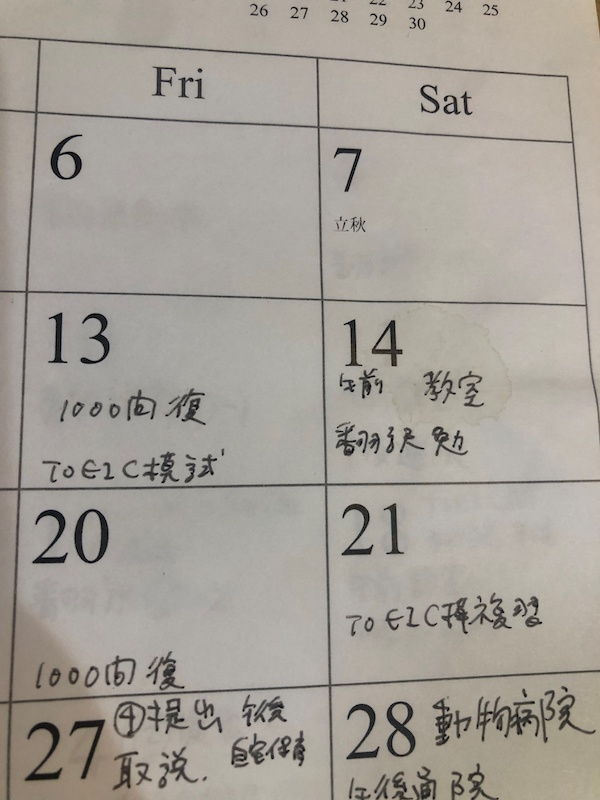 22 23 24 25
26 27 28 29 30
Fri Sat
6 7
立秋
13 14
午前 教室
1000問 復
翻訳 勉
TOEIC模試
20 21
TOEIC模 復習
1000問 復
27 ④提出 午後
取説. 自宅保育
28 動物病院
午後通院